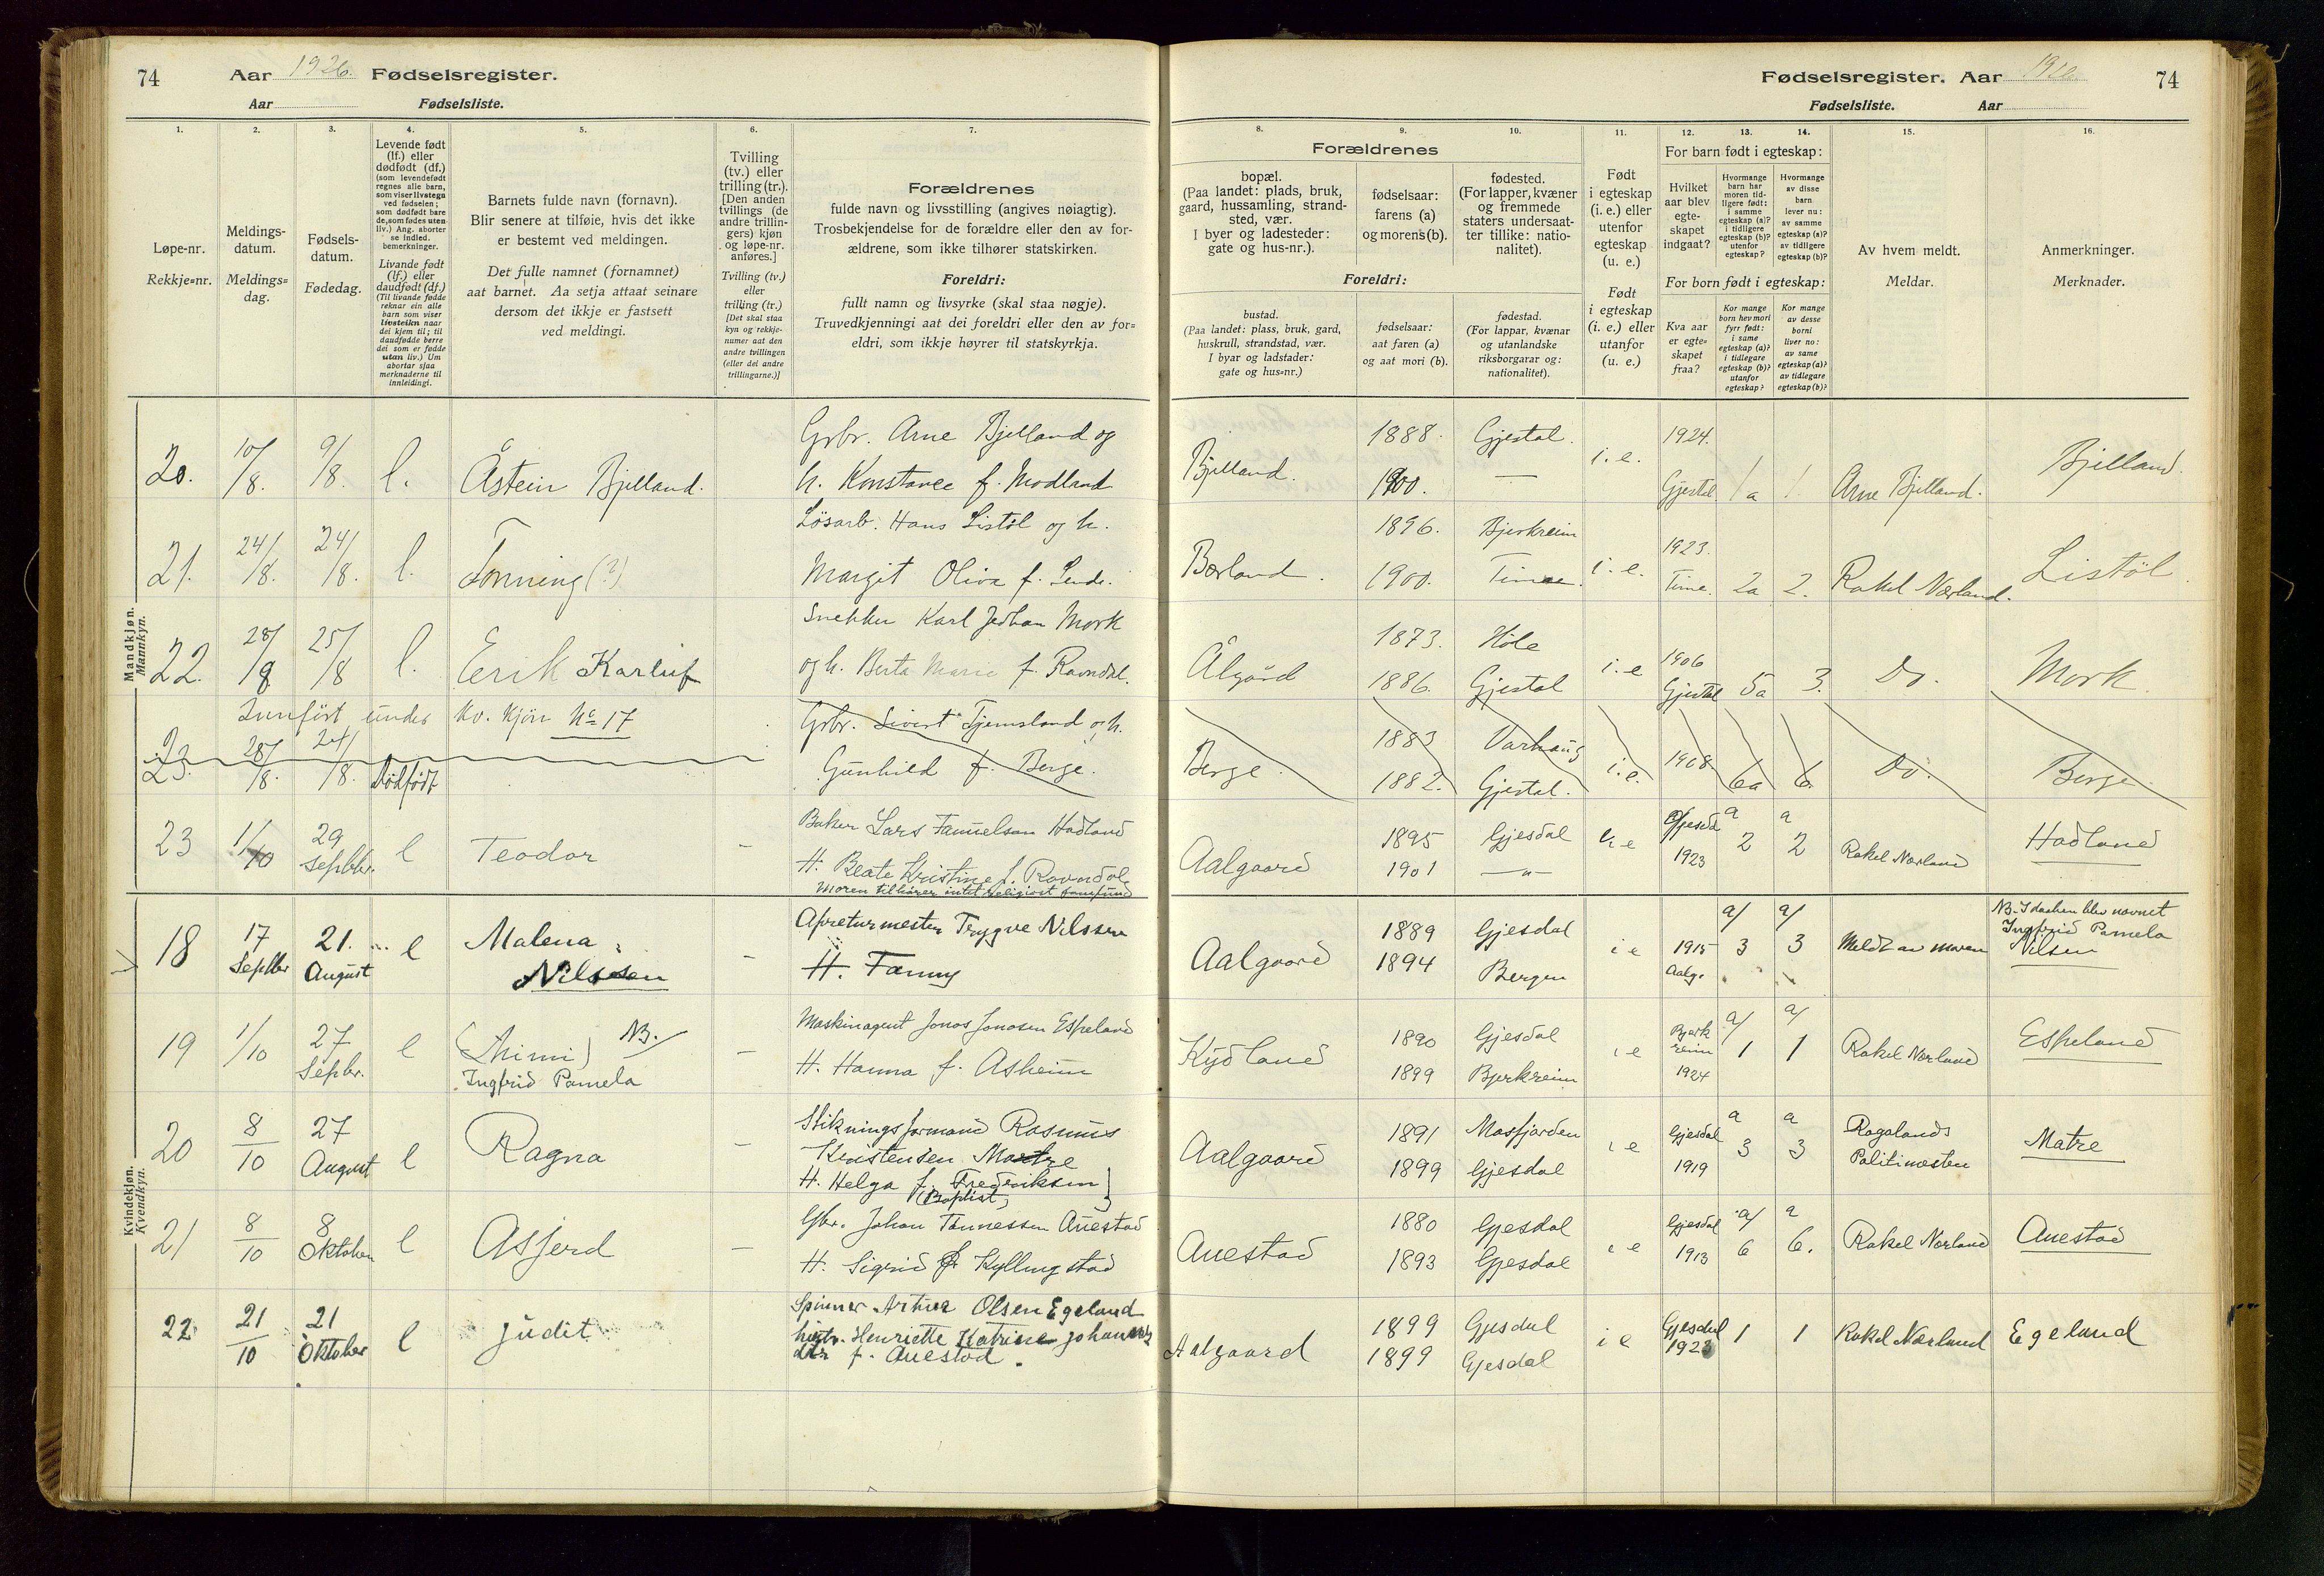 74
Aar 1926. Fødselsregister.
Aar Fødselsliste.
Fødselsregister. Aar 1926.
74
Fødselsliste. Aar
1.
2.
3.
4.
5.
6.
7.
8.
9.
10.
11.
12.
13.
14.
15.
16.
Løpe-nr.
Rekkje=nr.
Meldings-
datum.
Meldings=
dag.
Fødsels-
datum.
Fødedag.
Levende født
(lf.) eller
dødfødt (df.)
(som levendefødt
regnes alle barn,
som viser livstegn
ved fødselen;
som dødfødt bare
de, som fødes uten
liv.) Ang. aborter
se indled.
bemerkninger.
Livande født
(lf.) eller
daudfødt (df.)
(Til livande fødde
reknar ein alle
barn som viser
livsteikn naar
dei kjem til; til
daudfødde berre
dei som er fødde
utan liv.) Um
abortar sjaa
merknaderne til
innleidingi.
Barnets fulde navn (fornavn).
Blir senere at tilføie, hvis det ikke
er bestemt ved meldingen.
Det fulle namnet (fornamnet)
aat barnet. Aa setja attaat seinare
dersom det ikkje er fastsett
ved meldingi.
Tvilling
(tv.) eller
trilling (tr.).
[Den anden
tvillings (de
andre trillin-
gers) kjøn
og løpe-nr.
anføres.]
Tvilling (tv.)
eller
trilling (tr.)
[Det skal staa
kyn og rekkje-
numer aat den
andre tvillingen
(eller dei andre
trillingarne.)]
Forældrenes
fulde navn og livsstilling (angives nøiagtig).
Trosbekjendelse for de forældre eller den av for-
ældrene, som ikke tilhører statskirken.
Foreldri:
fullt namn og livsyrke (skal staa nøgje).
Truvedkjenningi aat dei foreldri eller den av for=
eldri, som ikkje høyrer til statskyrkja.
Forældrenes
bopæl.
(Paa landet: plads, bruk,
gaard, hussamling, strand-
sted, vær.
I byer og ladesteder:
gate og hus-nr.).
fødselsaar:
farens (a)
og morens (b).
fødested.
(For lapper, kvæner
og fremmede
staters undersaat-
ter tillike: natio-
nalitet).
Foreldri:
bustad.
(Paa landet: plass, bruk, gard,
huskrull, strandstad, vær.
I byar og ladstader:
gate og hus=nr.)
fødselsaar:
aat faren (a)
og aat mori (b).
fødestad.
(For lappar, kvænar
og utanlandske
riksborgarar og:
nationalitet).
Født
i egteskap
(i. e.) eller
utenfor
egteskap
(u. e.)
Født
i egteskap
(i. e.) eller
utanfor
(u. e.)
For barn født i egteskap:
Hvilket
aar blev
egte-
skapet
indgaat?
Hvormange
barn har
moren tid-
ligere født:
i samme
egteskap (a)?
i tidligere
egteskap (b)?
utenfor
egteskap?
Hvormange
av disse
barn
lever nu:
av samme
egteskap (a)?
av tidligere
egteskap (b)?
For born født i egteskap:
Kva aar
er egte=
skapet
fraa?
Kor mange
born hev mori
fyrr født:
i same
egteskap (a)?
i tidlegare
egteskap (b)?
utanfor
egteskap?
Kor mange
av desse
borni
liver no:
av same
egteskap (a)?
av tidlegare
egteskap (b)?
Av hvem meldt.
Meldar.
Anmerkninger.
Merknader.
Mandkjøn.
Mannkyn.
20. 10/8. 9/8. l. Åstein Bjelland. Grbr. Arne Bjelland og
h. Konstance f. Modland Bjelland. 1888. 1900. Gjestal. — i. e. 1924. Gjestal 1a 1. Arne Bjelland. Bjelland.
21. 24/8. 24/8. l. Tonning (?) Lösarb. Hans Listöl og h.
Margit Oliva f. Lende. Borland. 1896. 1900. Bjerkreim Time. i. e. 1923. Time. 2a 2. Rakel Nærland. Listöl.
22. 28/8 25/8 l. Erik Karluf Snekker Karl Johan Mork
og h. Berta Marie f. Ravndal. Ålgård 1873. 1886. Höle Gjestal i. e 1906 Gjestal 5a 3. Do. Mork.
Innført under kv. kjøn No 17
23. 28/8. 24/8. Dödfödt Grbr. Sivert Tjemsland og h.
Gunhild f. Berge. Berge. 1883 1882. Varhaug Gjestal. i. e. 1908. 6a 6. Do. Berge.
23 1/10 29 septbr. l Teodor - Baker Lars Samuelsen Hadland
H. Beate Kristine f. Ravndal
Moren tilhører intet religiøst samfund Aalgaard 1895 1901 Gjesdal —"— i e Gjesdal 1923 a 2 a 2 Rakel Nærland Hadland
Kvindekjøn.
Kvendkyn.
18 17 Septbr 21. August l Malena
Nilssen - Apreturmester Trygve Nilssen
H. Fanny Aalgaard 1889 1894 Gjesdal Bergen i e 1915 Aalg. a/ 3 a/ 3 Meldt av moren NB. I daaben blev navnet
Ingfrid Pamela
Nilsen
19 1/10 27 Septbr. l (Mimi) NB.
Ingfrid Pamela - Maskinagent Jonas Jonasen Espeland
H. Hanna f. Asheim Kydland 1890 1899 Gjesdal Bjerkreim i e Bjerkreim 1924 a/ 1 a/ 1 Rakel Nærland Espeland
20 8/10 27 August l Ragna - Stikningsformand Rasmus
Kristensen Matre
H. Helga f. Fredriksen
(Baptist) Aalgaard 1891 1899 Masfjorden Gjesdal i e Gjesdal 1919 a 3 a 3 Rogalands
Politimester Matre
21 8/10 8 Oktober l Asfjerd - Gbr. Johan Tønnessen Auestad
H. Sigrid f. Kyllingstad Auestad 1880 1893 Gjesdal Gjesdal i e Gjesdal 1913 a/ 6 a 6. Rakel Nærland Auestad
22 21/10 21 Oktober l Judit Spinner Artur Olsen Egeland
hustr. Henriette Katrine Johannes
dtr f. Auestad. Aalgaard 1899 1899 Gjesdal Gjesdal i e Gjesdal 1923 1 1 Rakel Nærland Egeland